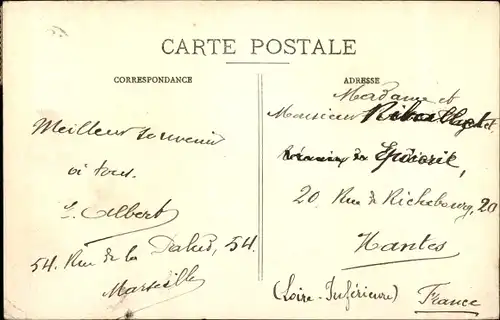 CARTE POSTALE
CORRESPONDANCE
Meilleur souvenir
à tous.
Albert
54. Rue de la 54.
Marseille
ADRESSE
Madame et
Monsieur
20 Rue de Richebourg, 20
Nantes
(Loire-Inférieure)
France